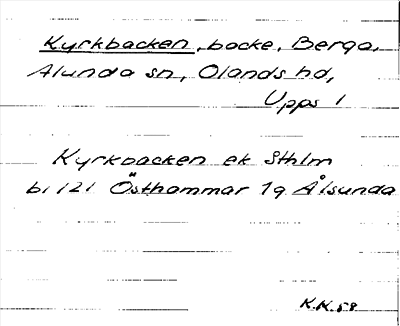 Kyrkbacken, backe, Berga,
Alunda sn, Olands hd,
Upps l
Kyrkbacken ek Sthlm
bl 121 Östhammar 1g Ålsunda
K.K. 58